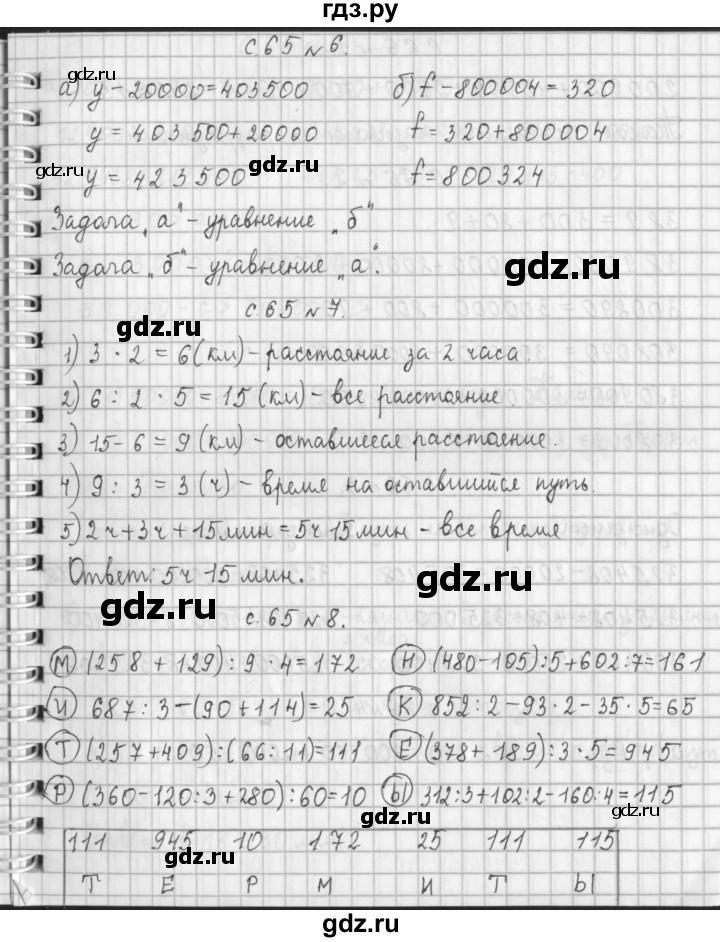 гдз.ру
с.65 №6.
а) y-20000=403500 б) f-800004=320
y=403500+20000 f=320+800004
gdz.ru gdz.ru
y=423500 f=800324
Задача „а“-уравнение „б“
gdz.ru
Задача „б“-уравнение „а“.
с.65 №7.
gdz.ru
1) 3·2=6(км)-расстояние за 2 часа.
2) 6:2·5=15(км)-все расстояние.
3) 15-6=9(км)-оставшееся расстояние.
4) 9:3=3(ч)-время на оставшийся путь.
5) 2ч+3ч+15мин=5ч15мин-все время
Ответ: 5ч 15мин.
gdz.ru
gdz.ru
с.65 №8.
М (258+129):9·4=172 Н (480-105):5+602:7=161
И 687:3-(90+114)=25 К 852:2-93·2-35·5=65
gdz.ru
Т (257+409):(66:11)=111 Е (378+189):3·5=945
Р (360-120:3+280):60=10 Ы 312:3+102:2-160:4=115
gdz.ru
gdz.ru
111 945 10 172 25 111 115
gdz.ru
Т Е Р М И Т Ы
gdz.ru